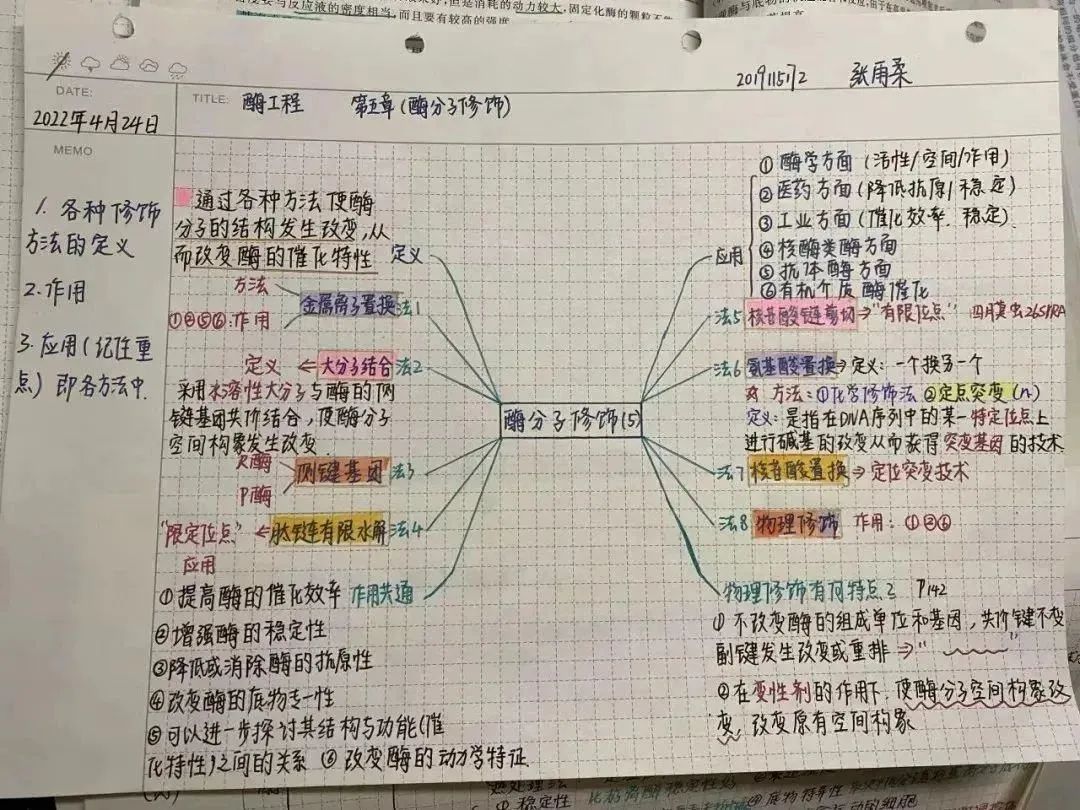 与反应液的密度相当,而且要有较高的强度
2019115172 张雨柔
DATE:
2022年4月24日
TITLE: 酶工程 第五章(酶分子修饰)
MEMO
1. 各种修饰
方法的定义
2. 作用
3. 应用(纪性重
点) 即各方法中.
通过各种方法使酶
分子的结构发生改变,从
而改变酶的催化特性 定义
方法
金属离子置换 法1
①④⑤⑥:作用
定义 ← 大分子结合 法2
采用水溶性大分子与酶的侧
键基团共价结合,使酶分子
空间构象发生改变.
R酶
侧键基团 法3
P酶
"限定位点" ← 肽链有限水解 法4
应用
①提高酶的催化效率 作用共通
②增强酶的稳定性
③降低或消除酶的抗原性
④改变酶的底物专一性
⑤可以进一步探讨其结构与功能(催
化特性)之间的关系 ⑥ 改变酶的动力学特征
酶分子修饰(5)
应用
① 酶学方面 (活性/空间/作用)
② 医药方面 (降低抗原/稳定)
③ 工业方面 (催化效率. 稳定).
④ 核酶类酶方面
⑤ 抗体酶方面
⑥ 有机介质酶催化
法5 核苷酸链剪切 → "有限位点" 四膜虫26SrRNA
法6 氨基酸置换 ⇒ 定义: 一个换另一个
方法: ①化学修饰法 ②定点突变(n)
定义: 是指在DNA序列中的某一特定位点上
进行碱基的改变从而获得突变基因的技术.
法7 核苷酸置换 ⇒ 定位突变技术
法8 物理修饰 作用: ①②⑥
物理修饰有何特点? P142
① 不改变酶的组成单位和基团, 共价键不变
副键发生改变或重排 ⇒ " "
② 在变性剂的作用下, 使酶分子空间构象改
变, 改变原有空间构象